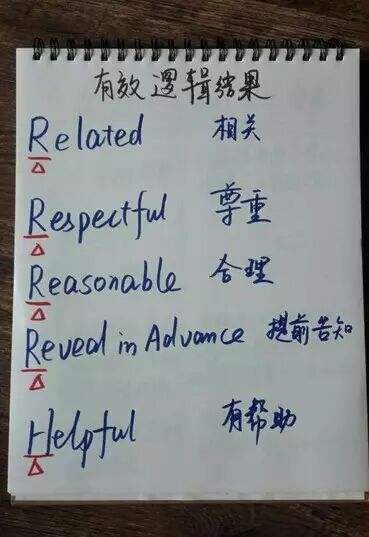 有效逻辑结果
Related 相关
Respectful 尊重
Reasonable 合理
Reveal in Advance 提前告知
Helpful 有帮助